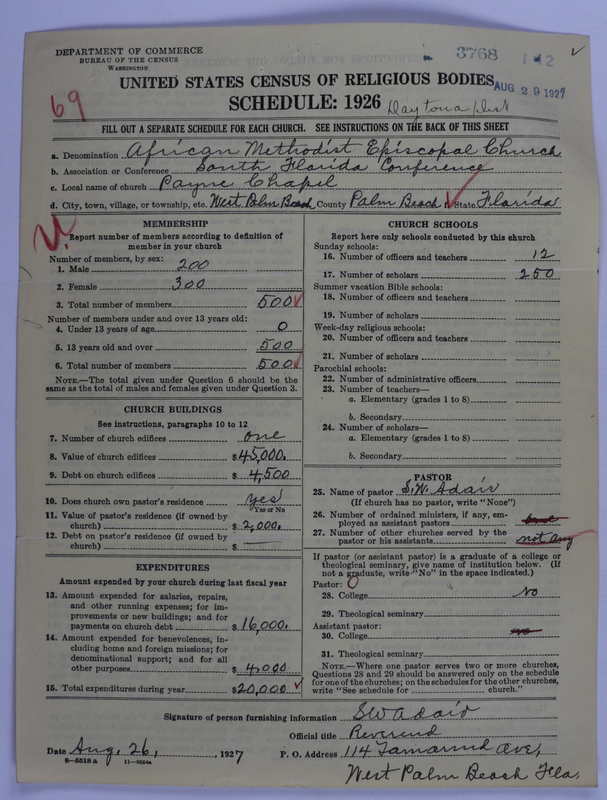 DEPARTMENT OF COMMERCE
BUREAU OF THE CENSUS
WASHINGTON
3768 1 42
UNITED STATES CENSUS OF RELIGIOUS BODIES
AUG 29 1927
SCHEDULE: 1926
Daytona Dist
69
FILL OUT A SEPARATE SCHEDULE FOR EACH CHURCH. SEE INSTRUCTIONS ON THE BACK OF THIS SHEET
a. Denomination African Methodist Episcopal Church
b. Association or Conference South Florida Conference
c. Local name of church Payne Chapel
d. City, town, village, or township, etc. West Palm Beach County Palm Beach State Florida
MEMBERSHIP
Report number of members according to definition of
member in your church
Number of members, by sex:
1. Male 200
2. Female 300
3. Total number of members 500
Number of members under and over 13 years old:
4. Under 13 years of age 0
5. 13 years old and over 500
6. Total number of members 500
NOTE.—The total given under Question 6 should be the
same as the total of males and females given under Question 3.
CHURCH BUILDINGS
See instructions, paragraphs 10 to 12
7. Number of church edifices one
8. Value of church edifices $45,000.
9. Debt on church edifices $4,500
10. Does church own pastor's residence yes
Yes or No
11. Value of pastor's residence (if owned by
church) $2,000.
12. Debt on pastor's residence (if owned by
church) $
EXPENDITURES
Amount expended by your church during last fiscal year
13. Amount expended for salaries, repairs,
and other running expenses; for im-
provements or new buildings; and for
payments on church debt $16,000.
14. Amount expended for benevolences, in-
cluding home and foreign missions; for
denominational support; and for all
other purposes $4,000
15. Total expenditures during year $20,000
CHURCH SCHOOLS
Report here only schools conducted by this church
Sunday schools:
16. Number of officers and teachers 12
17. Number of scholars 250
Summer vacation Bible schools:
18. Number of officers and teachers
19. Number of scholars
Week-day religious schools:
20. Number of officers and teachers
21. Number of scholars
Parochial schools:
22. Number of administrative officers
23. Number of teachers—
a. Elementary (grades 1 to 8)
b. Secondary
24. Number of scholars—
a. Elementary (grades 1 to 8)
b. Secondary
PASTOR
25. Name of pastor S.W. Adair
(If church has no pastor, write "None")
26. Number of ordained ministers, if any, em-
ployed as assistant pastors
27. Number of other churches served by the
pastor or his assistants not any
If pastor (or assistant pastor) is a graduate of a college or
theological seminary, give name of institution below. (If
not a graduate, write "No" in the space indicated.)
Pastor: 0
28. College No
29. Theological seminary
Assistant pastor:
30. College no
31. Theological seminary
NOTE.—Where one pastor serves two or more churches,
Questions 28 and 29 should be answered only on the schedule
for one of the churches; on the schedules for the other churches,
write "See schedule for church."
Signature of person furnishing information SW Adair
Official title Reverend
Date Aug. 26, 1927 P. O. Address 114 Tamarind Ave,
6—5518 a 11—9054a
West Palm Beach Fla.